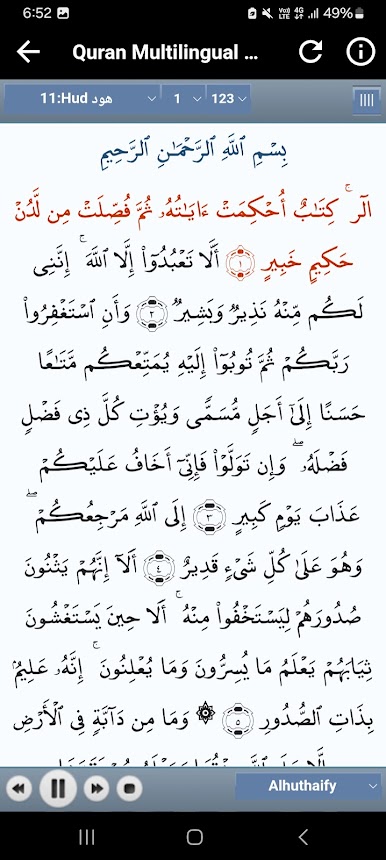 6:52 Vo) LTE 4G 49%
Quran Multilingual ...
11:Hud هود 1 123
بِسْمِ ٱللَّهِ ٱلرَّحْمَـٰنِ ٱلرَّحِيمِ
الٓر ۚ كِتَـٰبٌ أُحْكِمَتْ ءَايَـٰتُهُۥ ثُمَّ فُصِّلَتْ مِن لَّدُنْ
حَكِيمٍ خَبِيرٍ ١ أَلَّا تَعْبُدُوٓا۟ إِلَّا ٱللَّهَ ۚ إِنَّنِى
لَكُم مِّنْهُ نَذِيرٌ وَبَشِيرٌ ٢ وَأَنِ ٱسْتَغْفِرُوا۟
رَبَّكُمْ ثُمَّ تُوبُوٓا۟ إِلَيْهِ يُمَتِّعْكُم مَّتَـٰعًا
حَسَنًا إِلَىٰٓ أَجَلٍ مُّسَمًّى وَيُؤْتِ كُلَّ ذِى فَضْلٍ
فَضْلَهُۥ ۖ وَإِن تَوَلَّوْا۟ فَإِنِّىٓ أَخَافُ عَلَيْكُمْ
عَذَابَ يَوْمٍ كَبِيرٍ ٣ إِلَى ٱللَّهِ مَرْجِعُكُمْ ۖ
وَهُوَ عَلَىٰ كُلِّ شَىْءٍ قَدِيرٌ ٤ أَلَآ إِنَّهُمْ يَثْنُونَ
صُدُورَهُمْ لِيَسْتَخْفُوا۟ مِنْهُ ۚ أَلَا حِينَ يَسْتَغْشُونَ
ثِيَابَهُمْ يَعْلَمُ مَا يُسِرُّونَ وَمَا يُعْلِنُونَ ۚ إِنَّهُۥ عَلِيمٌۢ
بِذَاتِ ٱلصُّدُورِ ٥ ۞ وَمَا مِن دَآبَّةٍ فِى ٱلْأَرْضِ
Alhuthaify